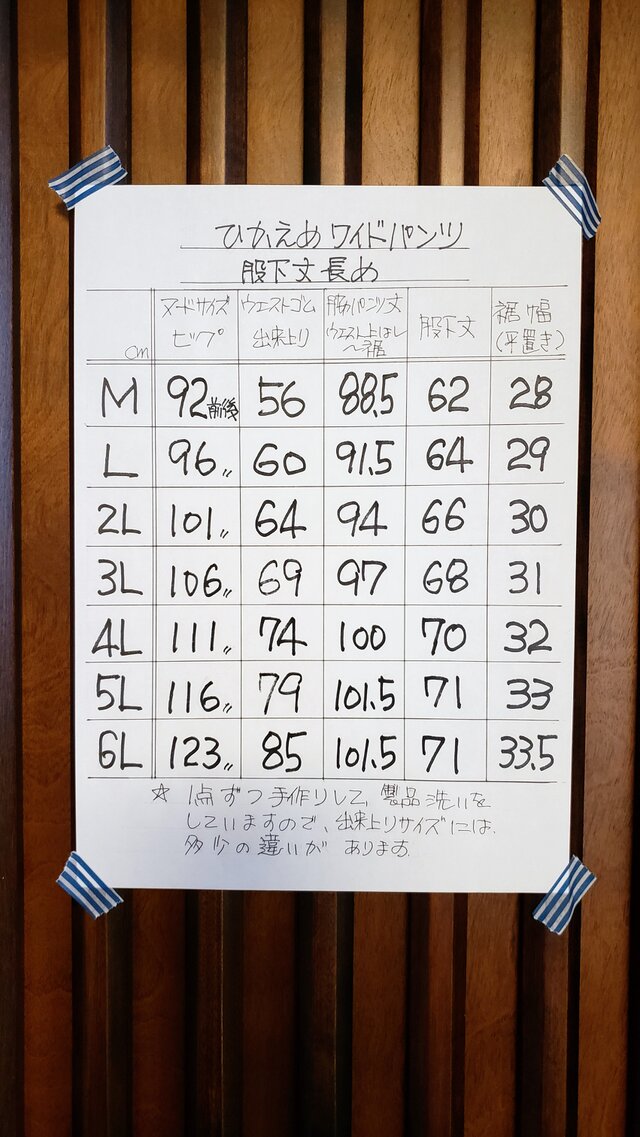 ひかえめワイドパンツ
股下丈長め
cm ヌードサイズ ヒップ ウエストゴム 出来上り 脇パンツ丈 ウエスト上はし 〜裾 股下丈 裾幅 (平置き)
M 92前後 56 88.5 62 28
L 96〃 60 91.5 64 29
2L 101〃 64 94 66 30
3L 106〃 69 97 68 31
4L 111〃 74 100 70 32
5L 116〃 79 101.5 71 33
6L 123〃 85 101.5 71 33.5
☆ 1点ずつ手作りして、製品洗いを
していますので、出来上りサイズには
多少の違いが あります。